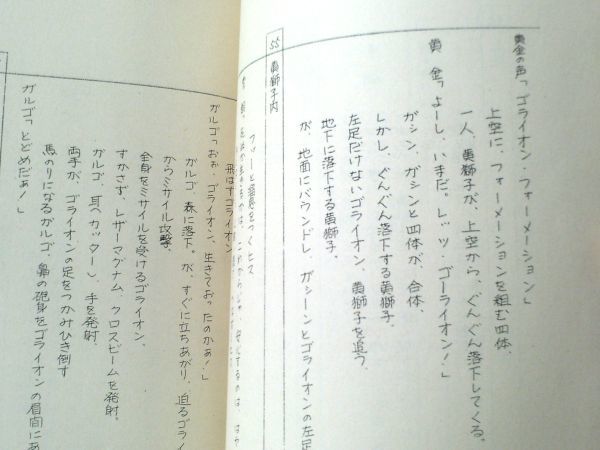 黄金の声「ゴライオン・フォーメーション」
上空に、フォーメーションを組む四体、
一人、黄獅子が、上空から、ぐんぐん落下してくる。
黄 金「よーし、いまだ。レッツ・ゴーライオン！」
ガシン、ガシンと四体が、合体、
しかし、ぐんぐん落下する黄獅子。
左足だけないゴライオン、黄獅子を追う。
地下に落下する黄獅子。
が、地面にバウンドし、ガシーンとゴライオンの左足
55 黄獅子内
フーッと溜息をつくヒス
飛ばすゴライオン
ガルゴ「おお、ゴライオン、生きておったのかぁ！」
ガルゴ、森に落下。が、すぐに立ちあがり、迫るゴライ
からミサイル攻撃、
全身をミサイルを受けるゴライオン、
すかさず、レザーマグナム、クロスビームを発射。
ガルゴ、耳（カッター）、手を発射。
両手が、ゴライオンの足をつかみひき倒す
馬のりになるガルゴ、鼻の砲身をゴライオンの眉間にあ
ガルゴ「とどめだぁ！」